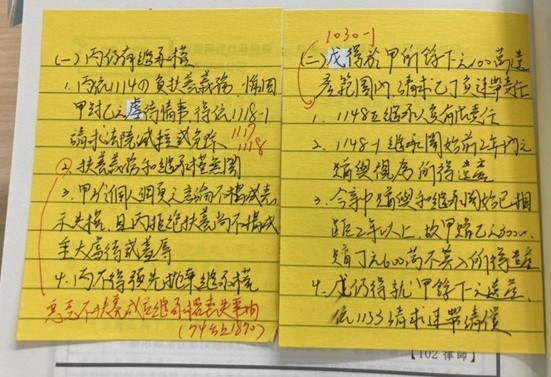 (一) 丙仍有繼承權
1. 丙依1114の負扶養義務，惟因
甲對乙之虐待情事得依1118-1
請求法院減輕或免除
1117
1118
2. 扶養義務和繼承權無關
3. 甲於個人網頁之言論不構成表
示失權，且丙拒絕扶養尚不構成
重大虐待或羞辱
4. 丙不得預先拋棄繼承權
惡意不扶養成為繼承權喪失事由
(74台上1870)
1030-1
(二) 戊得於甲所餘下之100萬遺
產範圍內，請求乙丁負連帶責任
1. 1148Ⅱ繼承人負有限責任
2. 1148-1 繼承開始前2年內之
贈與視為所得遺產
3. 今本件贈與和繼承開始已相
距2年以上，故甲贈乙之3000、
贈丁之600萬不算入所得遺產
4. 戊仍得就甲餘下之遺產，
依1153請求連帶清償
【102律師】